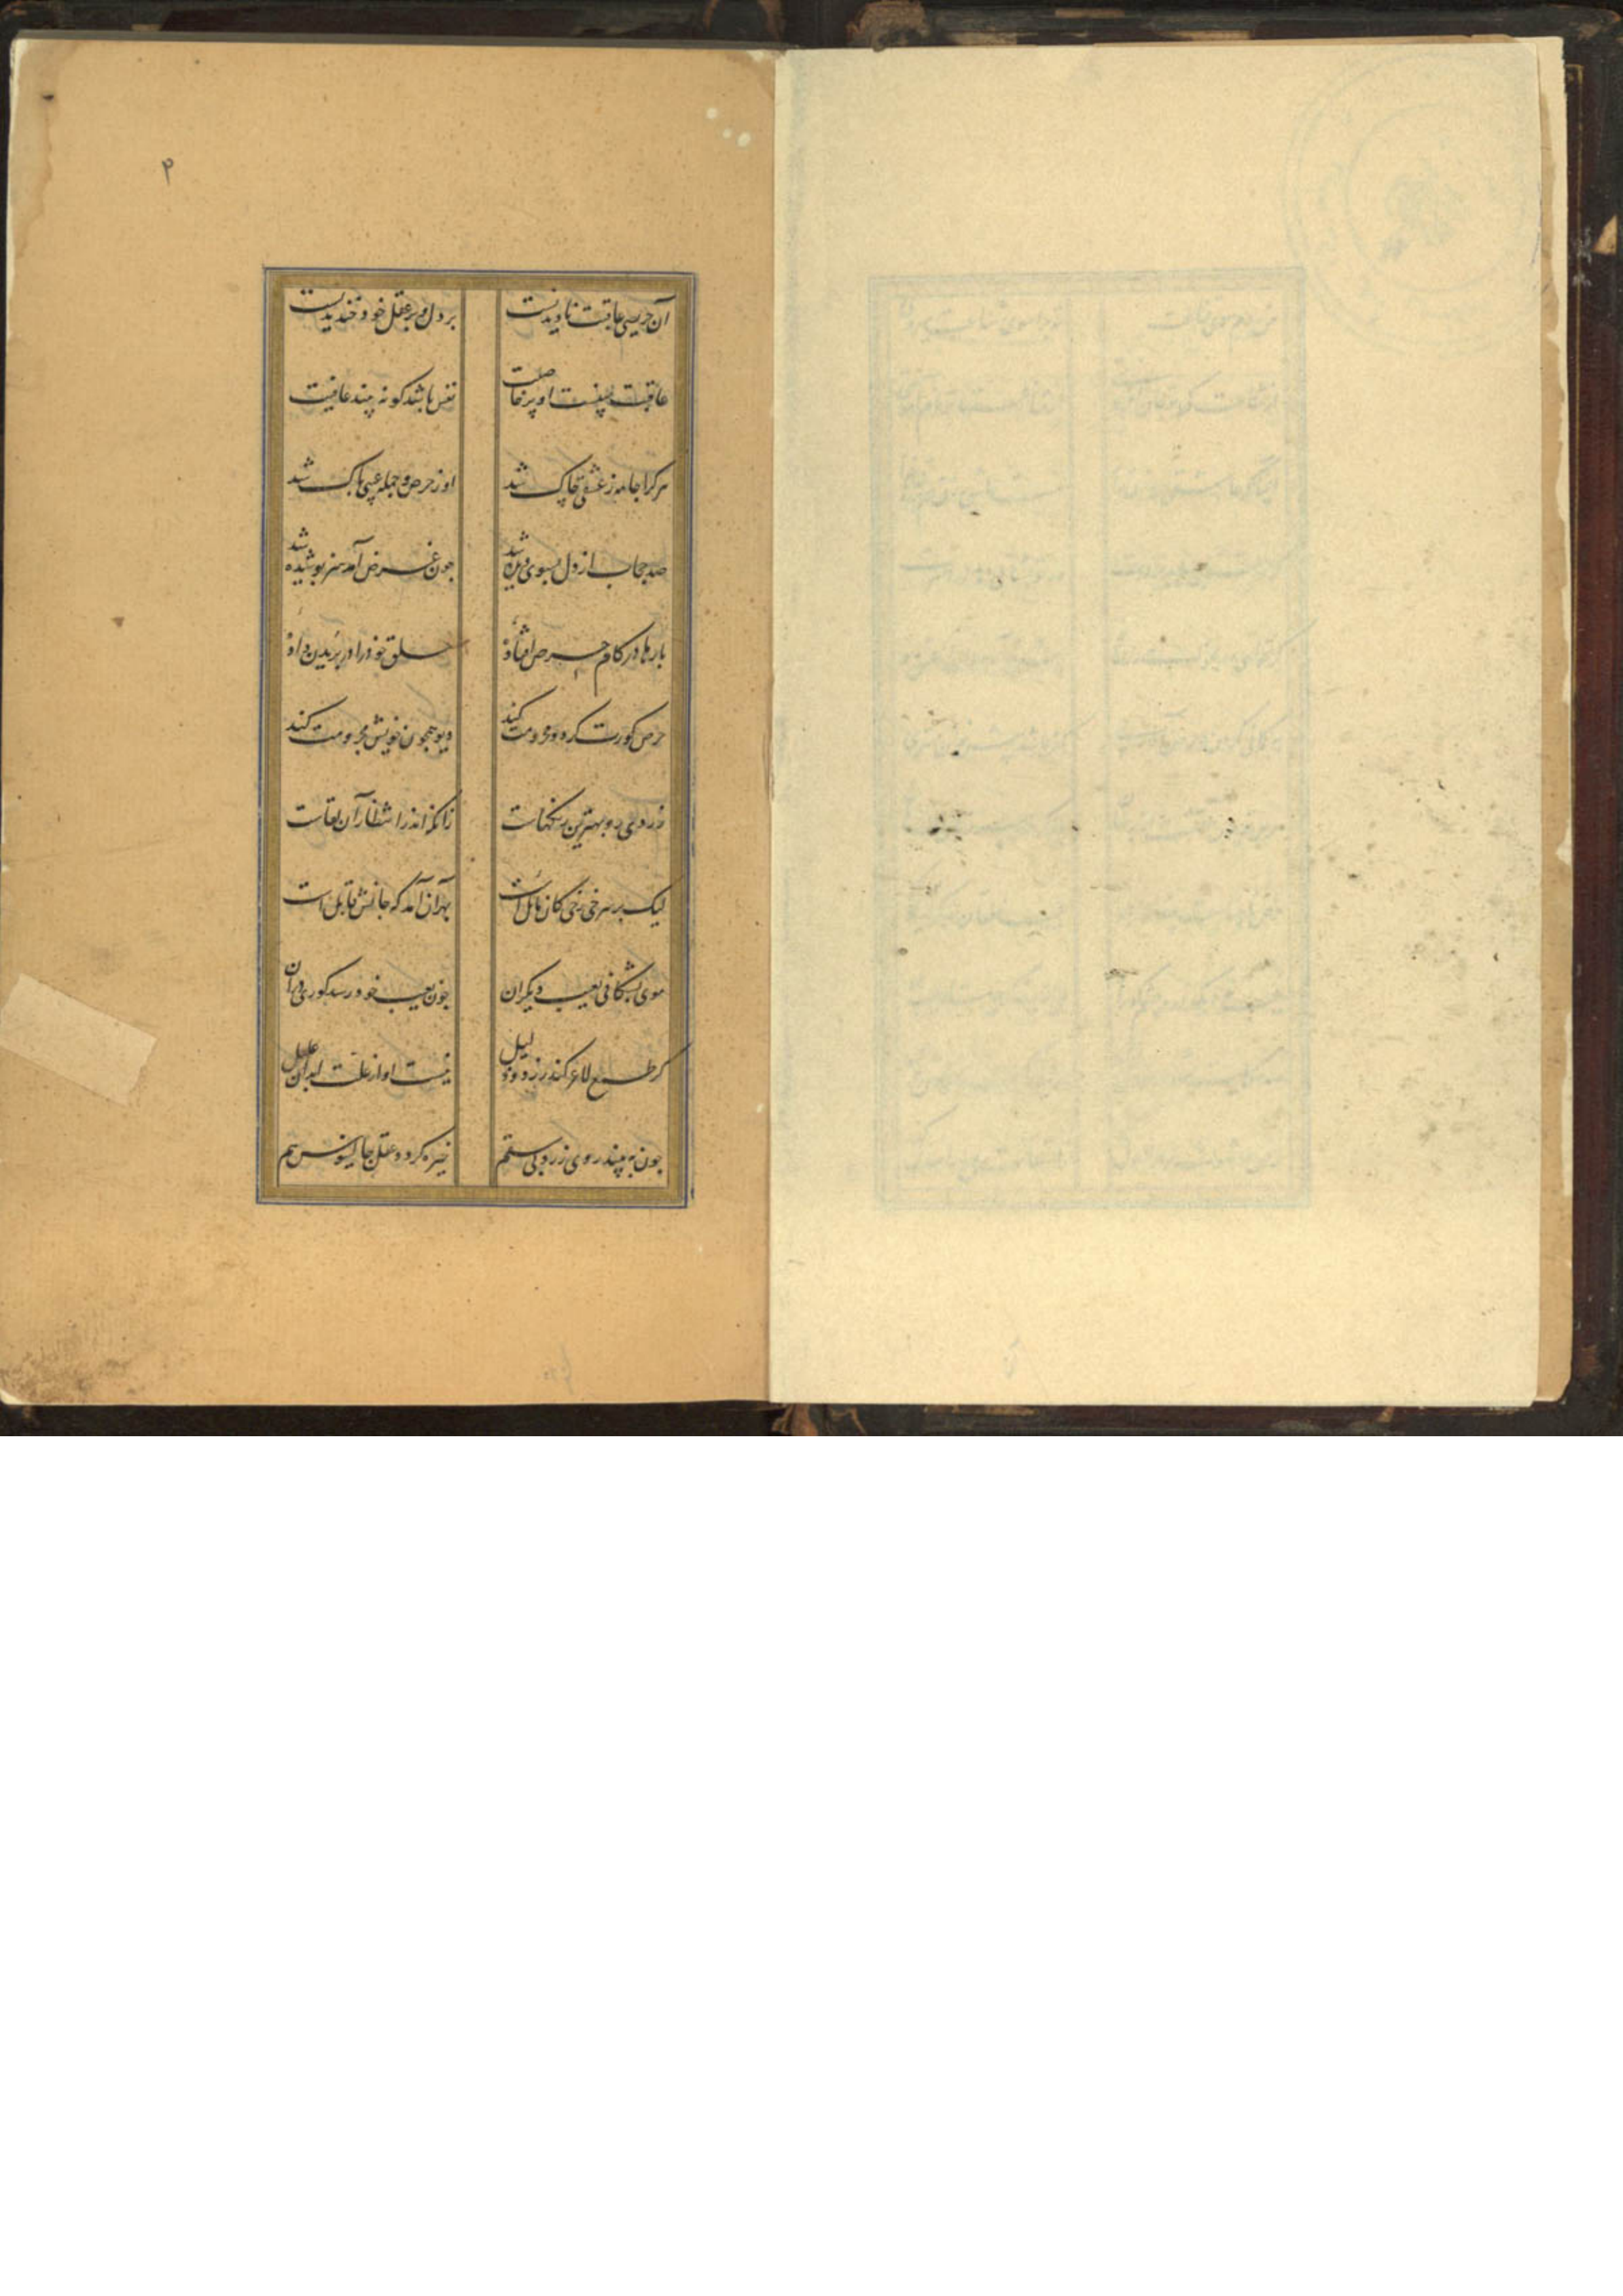 ۴
آن حریصی عاقبت نادیدنست بر دل و بر عقل خود خندیدنست
عاقبت بینست او پر خاصیت نفس باشد کو نه بیند عافیت
هر کرا جامه ز عشقی چاک شد او ز حرص و جمله عیبی پاک شد
صد حجاب از دل بسوی دیده شد چون غرض آمد هنر پوشیده شد
بارها در کام حرص افتاده حلق خود را در بریدن داده
حرص کورت کرد و محرومت کند دیو همچون خویش مرجومت کند
زردی رو بهترین رنگهاست زانکه اندر انتظار آن لقاست
لیک بر سرخی رخی کان مائل است بهر آن آمد که جانش قابل است
موی بشکافی بعیب دیگران چون بعیب خود رسد کوری در آن
کز طمع لاغر کند زرد و ذلیل نیست او از علت ابدان علیل
چون به بیند روی زرد بی سقم خیره گردد عقل جالینوس هم